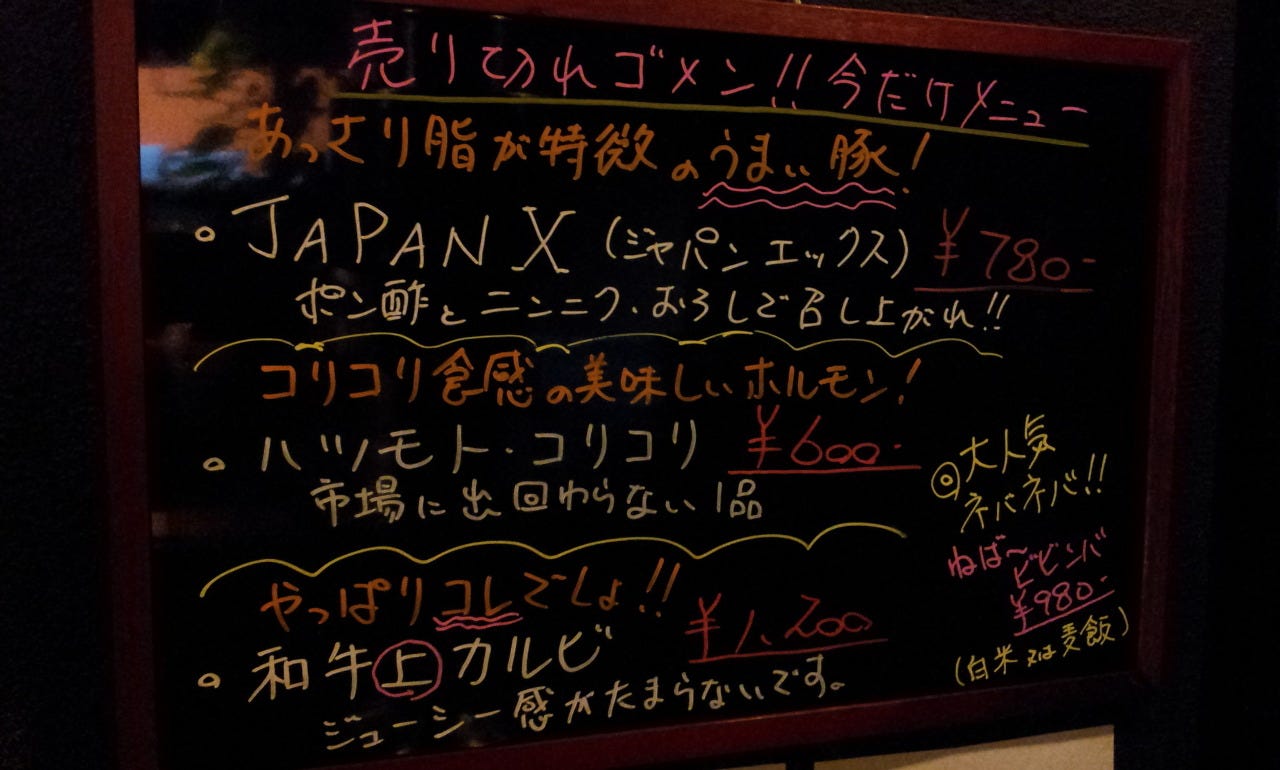 売り切れゴメン!! 今だけメニュー
あっさり脂が特徴のうまい豚!
。JAPAN X (ジャパンエックス) ¥780-
ポン酢とニンニク・おろしで召し上がれ!!
コリコリ食感の美味しいホルモン!
。ハツモト・コリコリ ¥600-
市場に出回わらない1品
やっぱりコレでしょ!!
。和牛上カルビ ¥1,200
ジューシー感がたまらないです。
◎大人気
ネバネバ!!
ねば〜
ビビンバ
¥980-
(白米又は麦飯)